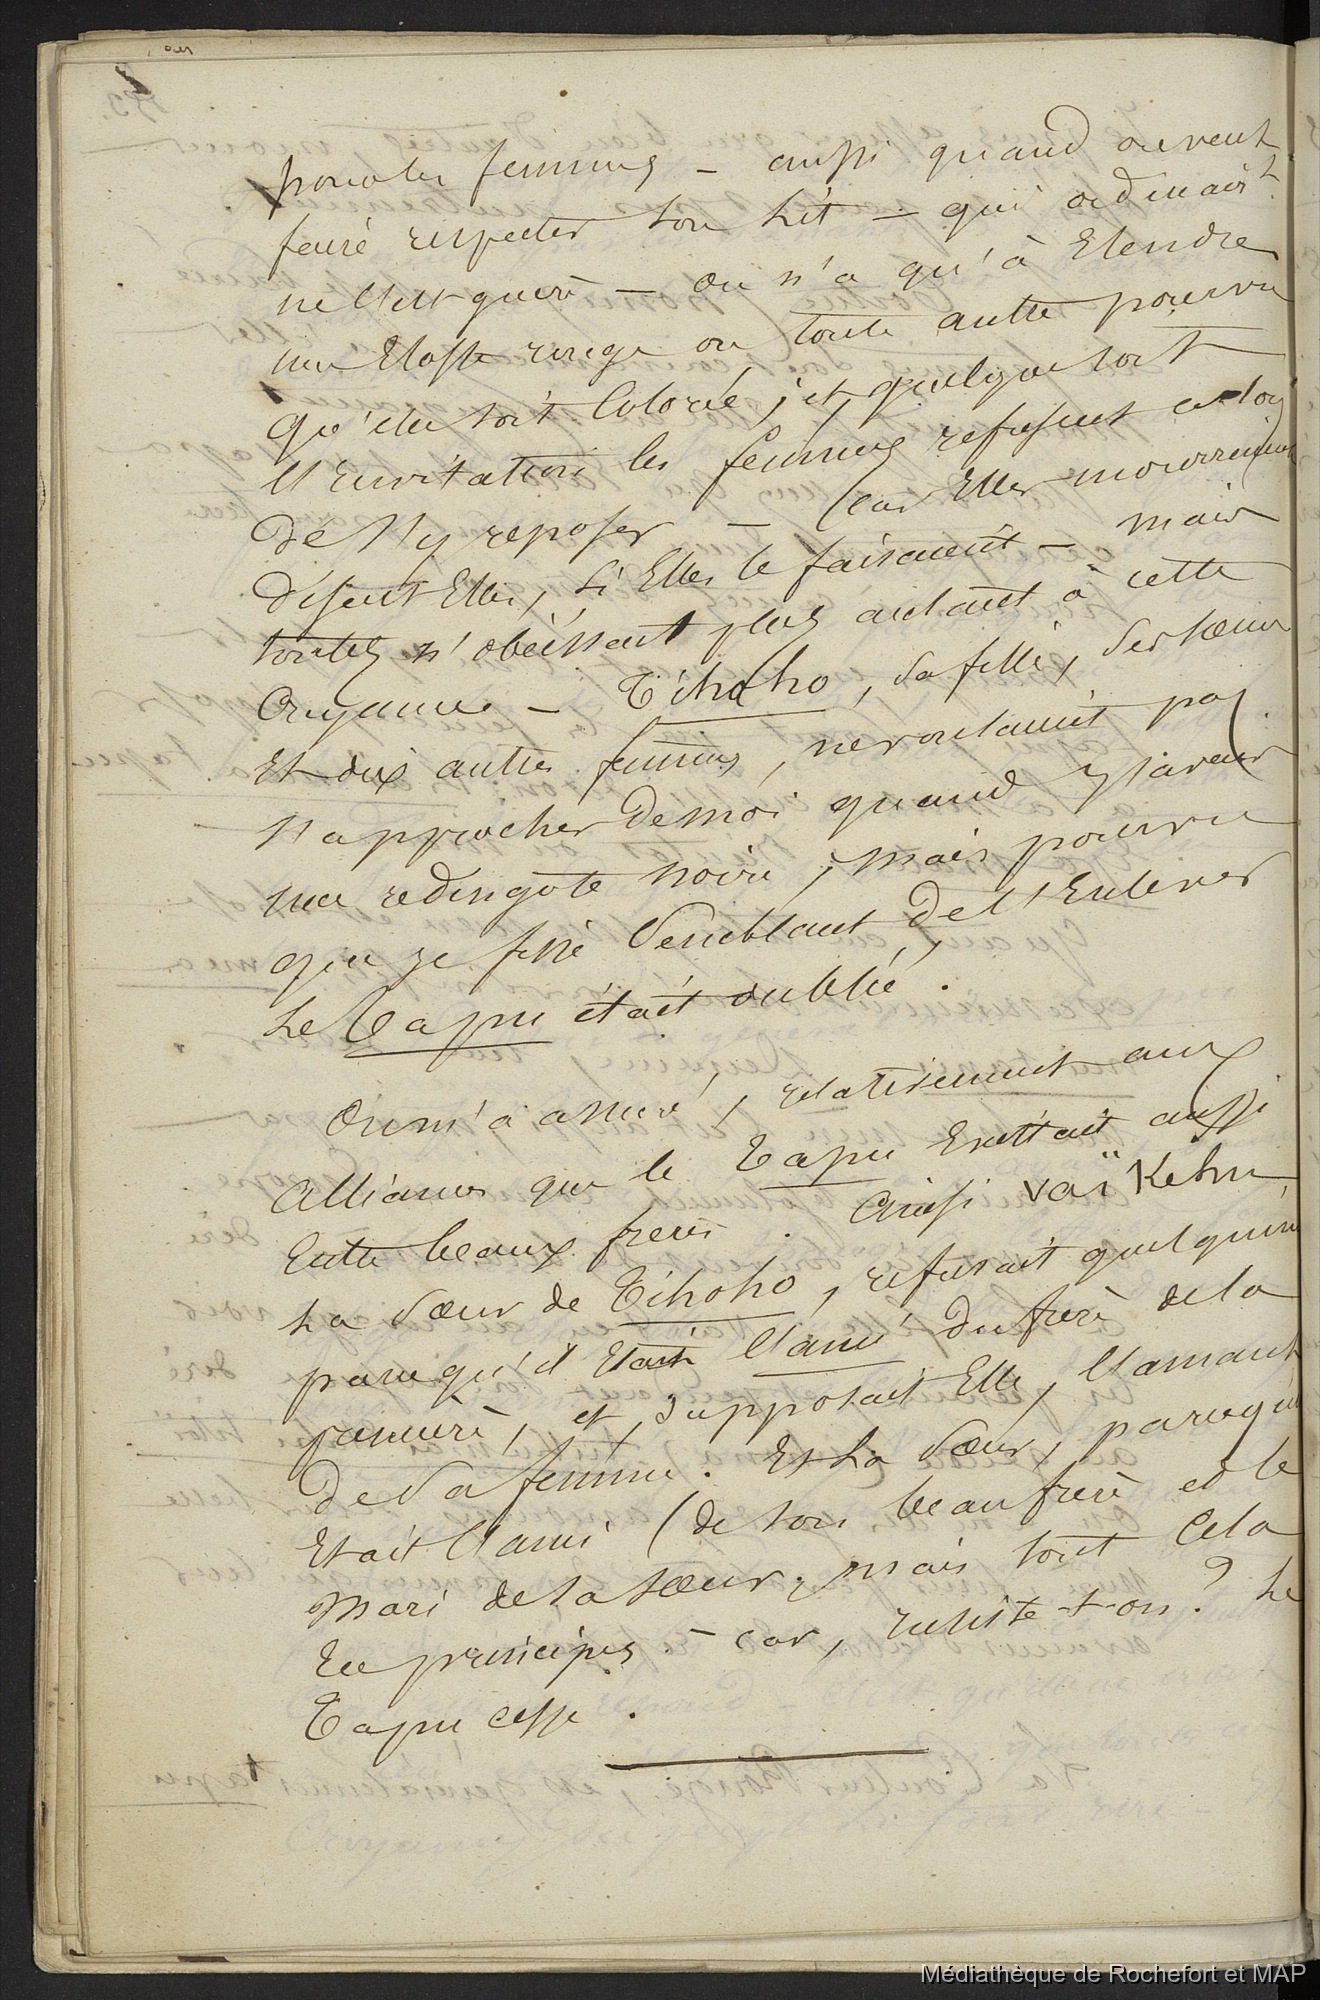 pour les femmes – aussi quand on veut
faire respecter son lit – qui ordinair.t
ne l'est guère – on n'a qu'à Etendre
une Etoffe rouge ou toute autre pourvu
qu'elle soit Colorée, et, quelque soit
l'invitation les femmes refusent alors
de s'y reposer – (car Elles mourraient
disent Elles, si Elles le faisaient – mais
toutes n'obéissent plus autant à cette
Croyance – Tihoho, sa fille, ses soeurs
Et dix autres femmes, ne voulaient pas
s'approcher de moi quand j'avais
ma redingote noire, mais pourvu
que je fisse Semblant de l'Enlever
le Tapu était oublié.
On m'a assuré, relativement aux
alliances que le Tapu Existait aussi
Entre beaux frères. Ainsi Vaï Kehu
la Soeur de Tihoho, refusait quelqu'un,
parcequ'il Etait l'ami du frère de la
première, et, supposait Elle, l'amant
de Sa femme. Et la Soeur, parcequ'il
Etait l'ami (de son beau frère et le
mari de la soeur, mais tout Cela
En principes – car, résiste-t-on? le
Tapu cesse.
Médiathèque de Rochefort et MAP